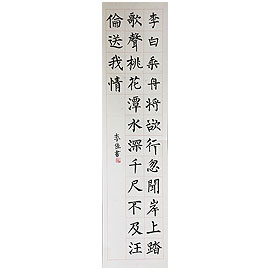 李白乘舟將欲行忽聞岸上踏
歌聲桃花潭水深千尺不及汪
倫送我情